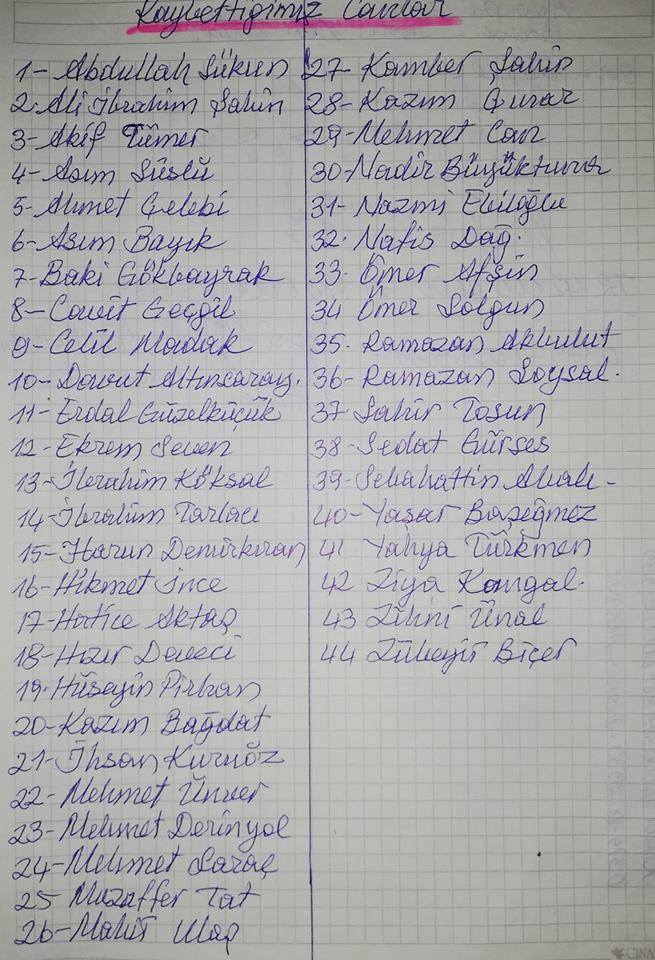 Kaybettiğimiz Canlar
1- Abdullah Sükun
2. Ali İbrahim Şahin
3- Akif Tümer
4- Asım Süslü
5- Ahmet Çelebi
6- Asım Bayık
7- Baki Gökbayrak
8- Cavit Geçgil
9- Celil Madak
10- Davut Altınsaray.
11- Erdal Güzelküçük
12- Ekrem Seven
13- İbrahim Köksal
14- İbrahim Tarlacı
15- Harun Demirkıran
16- Hikmet İnce
17- Hatice Aktaş
18- Hıdır Deveci
19- Hüseyin Pirhan
20- Kazım Bağdat
21- İhsan Kurnöz
22- Mehmet Ünver
23- Mehmet Derinyol
24- Mehmet Saraç
25 Muzaffer Tat
26- Mahir Ulaş
27- Kamber Şahin
28- Kazım Çınar
29- Mehmet Can
30- Nadir Büyükturna
31- Nazmi Ebiloğlu
32. Nafis Dağ.
33. Ömer Afşin
34 Ömer Solgun
35. Ramazan Akbulut
36- Ramazan Soysal.
37. Sahir Tosun
38- Sedat Gürses
39- Sebahattin
40- Yaşar Başeğmez
41 Yahya Türkmen
42 Ziya Kangal.
43 Zihni Ünal
44 Zübeyir Biçer